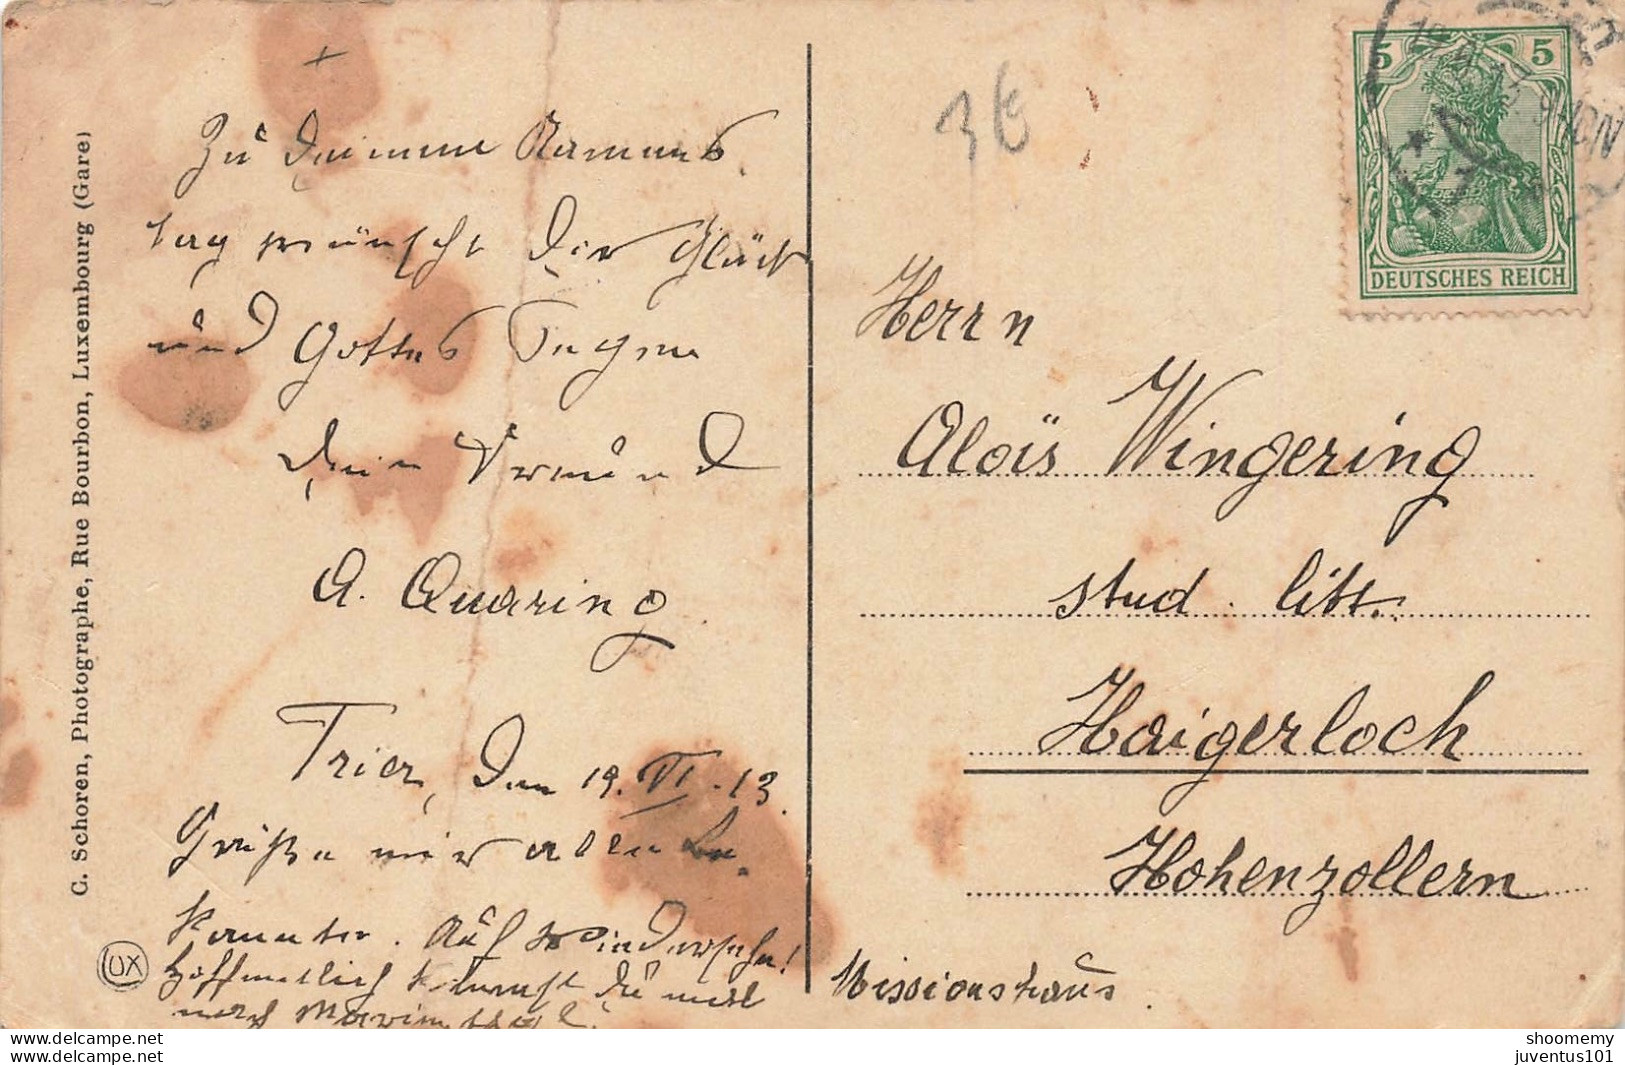 C. Schoren, Photographe, Rue Bourbon, Luxembourg (Gare)
Zu Deinem Namens
tag wünscht Dir Glück
und Gottes Segen
Dein Freund
A. Quaring
Trier, den 19. VI. 13.
Grüße mir alle Be-
kannten. Auf Wiedersehn!
Hoffentlich kommst Du mal
nach
LUX
3€
5 5
DEUTSCHES REICH
Herrn
Alois Wingering
stud. litt.
Haigerloch
Hohenzollern
Missionshaus.
www.delcampe.net
shoomemy
juventus101